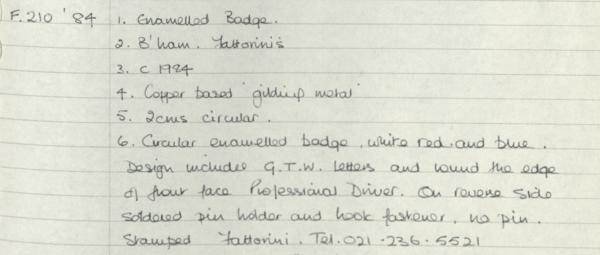 F.210 '84 1. Enamelled Badge.
2. B'ham. Fattorini's
3. c 1984
4. Copper based 'gilding metal'
5. 2cms circular.
6. Circular enamelled badge, white red and blue.
Design includes G.T.W. letters and round the edge
of front face Professional Driver. On reverse side
soldered pin holder and hook fastener, no pin.
Stamped Fattorini. Tel. 021.236.5521